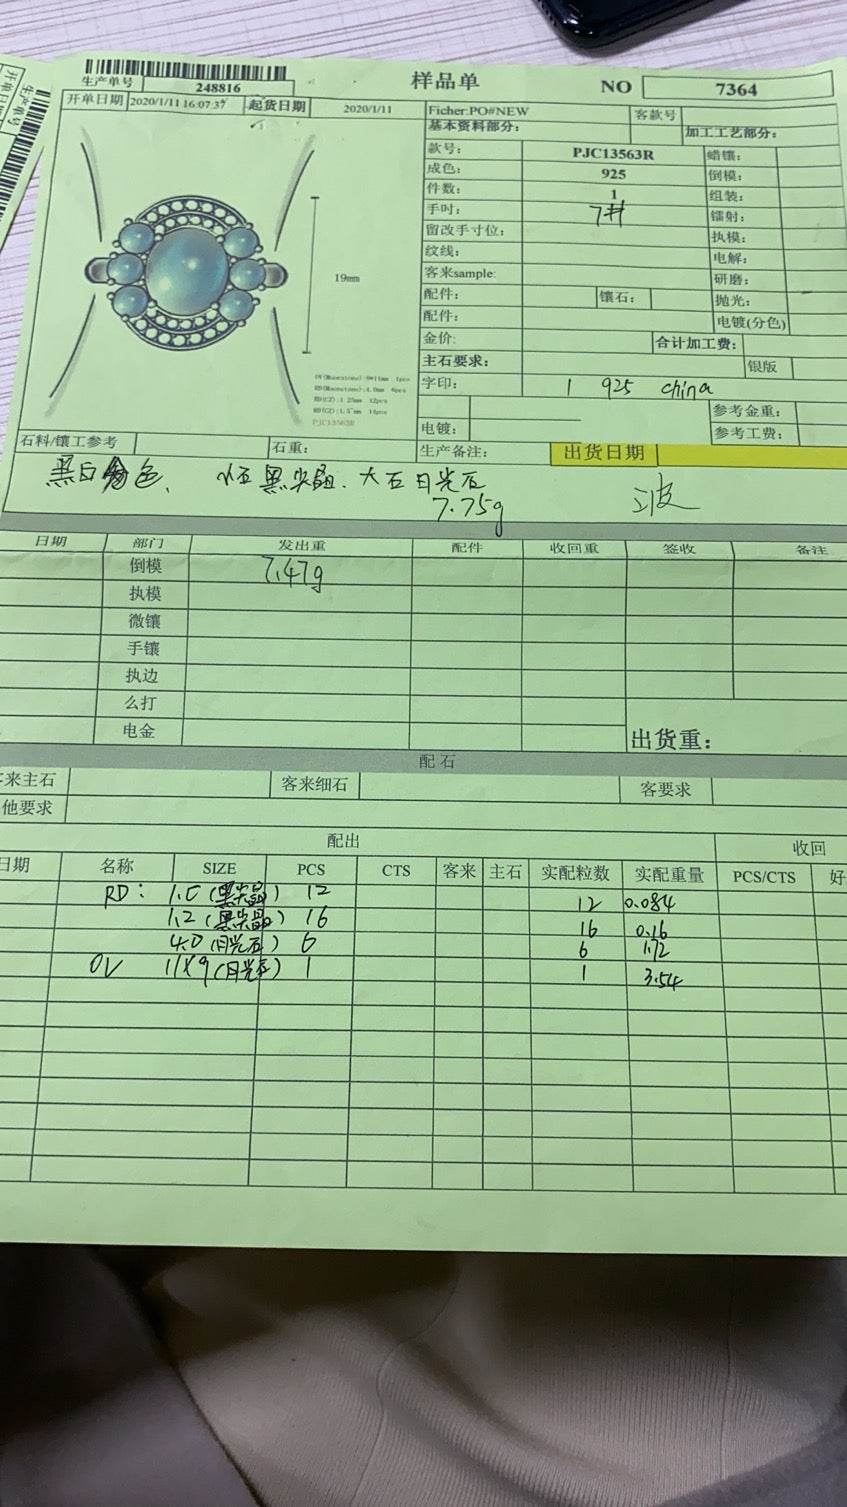 样品单
NO 7364
生产单号 248816
开单日期 2020/1/11 16:07:37 起货日期 2020/1/11 Ficher:PO#NEW 客款号
基本资料部分: 加工工艺部分:
款号: PJC13563R 蜡镶:
成色: 925 倒模:
件数: 1 组装:
手吋: 7# 镭射:
留改手寸位: 执模:
纹线: 电解:
客来sample: 研磨:
配件: 镶石: 抛光:
配件: 电镀(分色)
金价: 合计加工费:
主石要求: 银版
字印: 1 925 china
参考金重:
电镀: 参考工费:
19mm
PJC13563R
石料/镶工参考 石重: 生产备注: 出货日期
黑白 色、 黑尖晶、大石月光石
7.75g
日期 部门 发出重 配件 收回重 签收 备注
倒模 7.47g
执模
微镶
手镶
执边
么打
电金
出货重:
配石
客来主石 客来细石 客要求
他要求
配出 收回
日期 名称 SIZE PCS CTS 客来 主石 实配粒数 实配重量 PCS/CTS 好
RD: 1.0(黑尖晶) 12 12 0.084
1.2(黑尖晶) 16 16 0.16
4.0(月光石) 6 6 1.72
OV 11×9(月光石) 1 1 3.54
开单日
生产单号